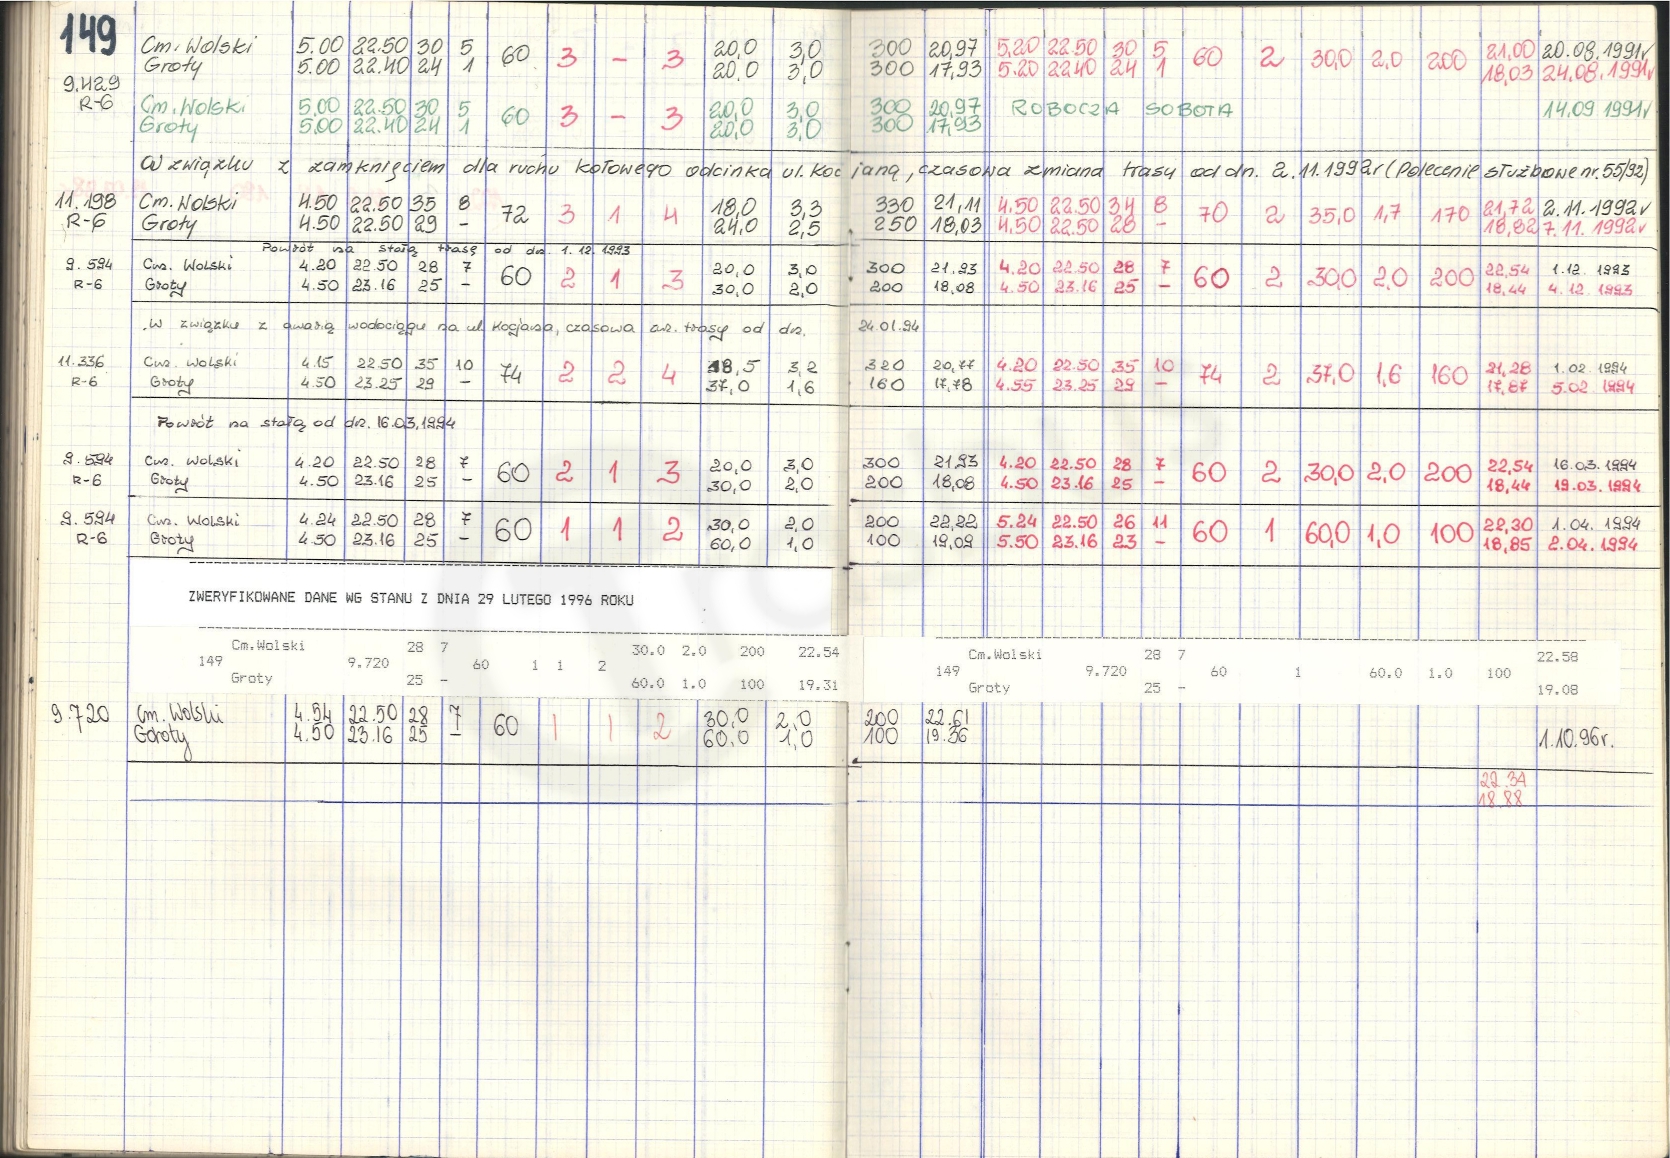 149
Cm. Wolski 5.00 22.50 30 5 60 3 – 3 20,0 3,0 300 20,97 5.20 22.50 30 5 60 2 30,0 2,0 200 21,00 20.08.1991r
Groty 5.00 22.40 24 1 20,0 3,0 300 17,93 5.20 22.40 24 1 18,03 24.08.1991r
9.429
R-6
Cm. Wolski 5.00 22.50 30 5 60 3 – 3 20,0 3,0 300 20,97 ROBOCZA SOBOTA 14.09 1991r
Groty 5.00 22.40 24 1 20,0 3,0 300 17,93
W związku z zamknięciem dla ruchu kołowego odcinka ul. Kocjaną, czasowa zmiana trasy od dn. 2.11.1992r (Polecenie służbowe nr. 55/92)
11.198 Cm. Wolski 4.50 22.50 35 8 72 3 1 4 18,0 3,3 330 21,11 4.50 22.50 34 8 70 2 35,0 1,7 170 21,72 2.11.1992r
R-6 Groty 4.50 22.50 29 – 24,0 2,5 250 18,03 4.50 22.50 28 – 18,82 7.11.1992r
Powrót na stałą trasę od dn. 1.12.1993
9.594 Cm. Wolski 4.20 22.50 28 7 60 2 1 3 20,0 3,0 300 21,93 4.20 22.50 28 7 60 2 30,0 2,0 200 22,54 1.12 1993
R-6 Groty 4.50 23.16 25 – 30,0 2,0 200 18,08 4.50 23.16 25 – 18,44 4.12 1993
W związku z awarią wodociągu na ul. Kocjana, czasowa zm. trasy od dn. 24.01.94
11.336 Cm. Wolski 4.15 22.50 35 10 74 2 2 4 18,5 3,2 320 20,77 4.20 22.50 35 10 74 2 37,0 1,6 160 21,28 1.02 1994
R-6 Groty 4.50 23.25 29 – 37,0 1,6 160 17,78 4.55 23.25 29 – 17,87 5.02 1994
Powrót na stałą od dn. 16.03.1994
9.594 Cm. Wolski 4.20 22.50 28 7 60 2 1 3 20,0 3,0 300 21,93 4.20 22.50 28 7 60 2 30,0 2,0 200 22,54 16.03.1994
R-6 Groty 4.50 23.16 25 – 30,0 2,0 200 18,08 4.50 23.16 25 – 18,44 19.03.1994
9.594 Cm. Wolski 4.24 22.50 28 7 60 1 1 2 30,0 2,0 200 22,22 5.24 22.50 26 11 60 1 60,0 1,0 100 22,30 1.04.1994
R-6 Groty 4.50 23.16 25 – 60,0 1,0 100 19,09 5.50 23.16 23 – 18,85 2.04.1994
ZWERYFIKOWANE DANE WG STANU Z DNIA 29 LUTEGO 1996 ROKU
Cm.Wolski 28 7 30.0 2.0 200 22.54 Cm.Wolski 28 7 22.58
149 9.720 60 1 1 2 149 9.720 60 1 60.0 1.0 100
Groty 25 – 60.0 1.0 100 19.31 Groty 25 – 19.08
9.720 Cm. Wolski 4.54 22.50 28 7 60 1 1 2 30,0 2,0 200 22.61
Groty 4.50 23.16 25 – 60,0 1,0 100 19.36 1.10.96r.
22.34
18.88